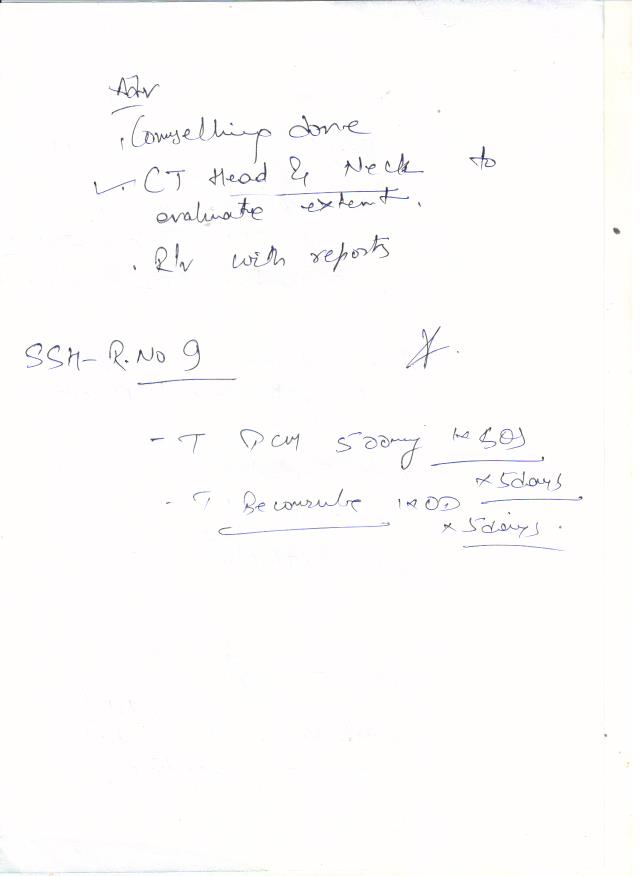 Adv
. Counselling done
. CT Head & Neck to
evaluate extent.
. R/v with reports
SSH - R. No 9
- T PCM 500mg 1x SOS
x 5days
- T Becosule 1xOD
x 5days.